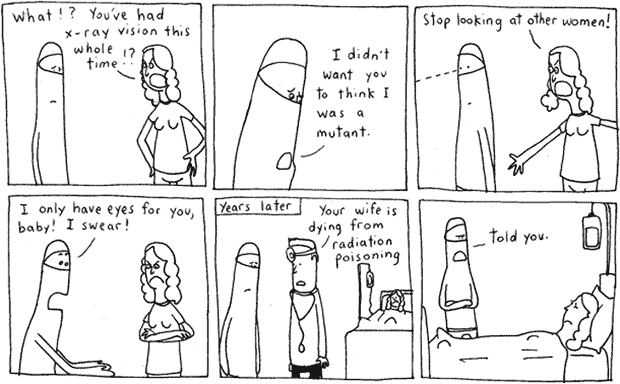 What!? You've had
x-ray vision this
whole
time!?
I didn't
want you
to think I
was a
mutant.
Stop looking at other women!
I only have eyes for you,
baby! I swear!
Years later
Your wife is
dying from
radiation
poisoning
Told you.